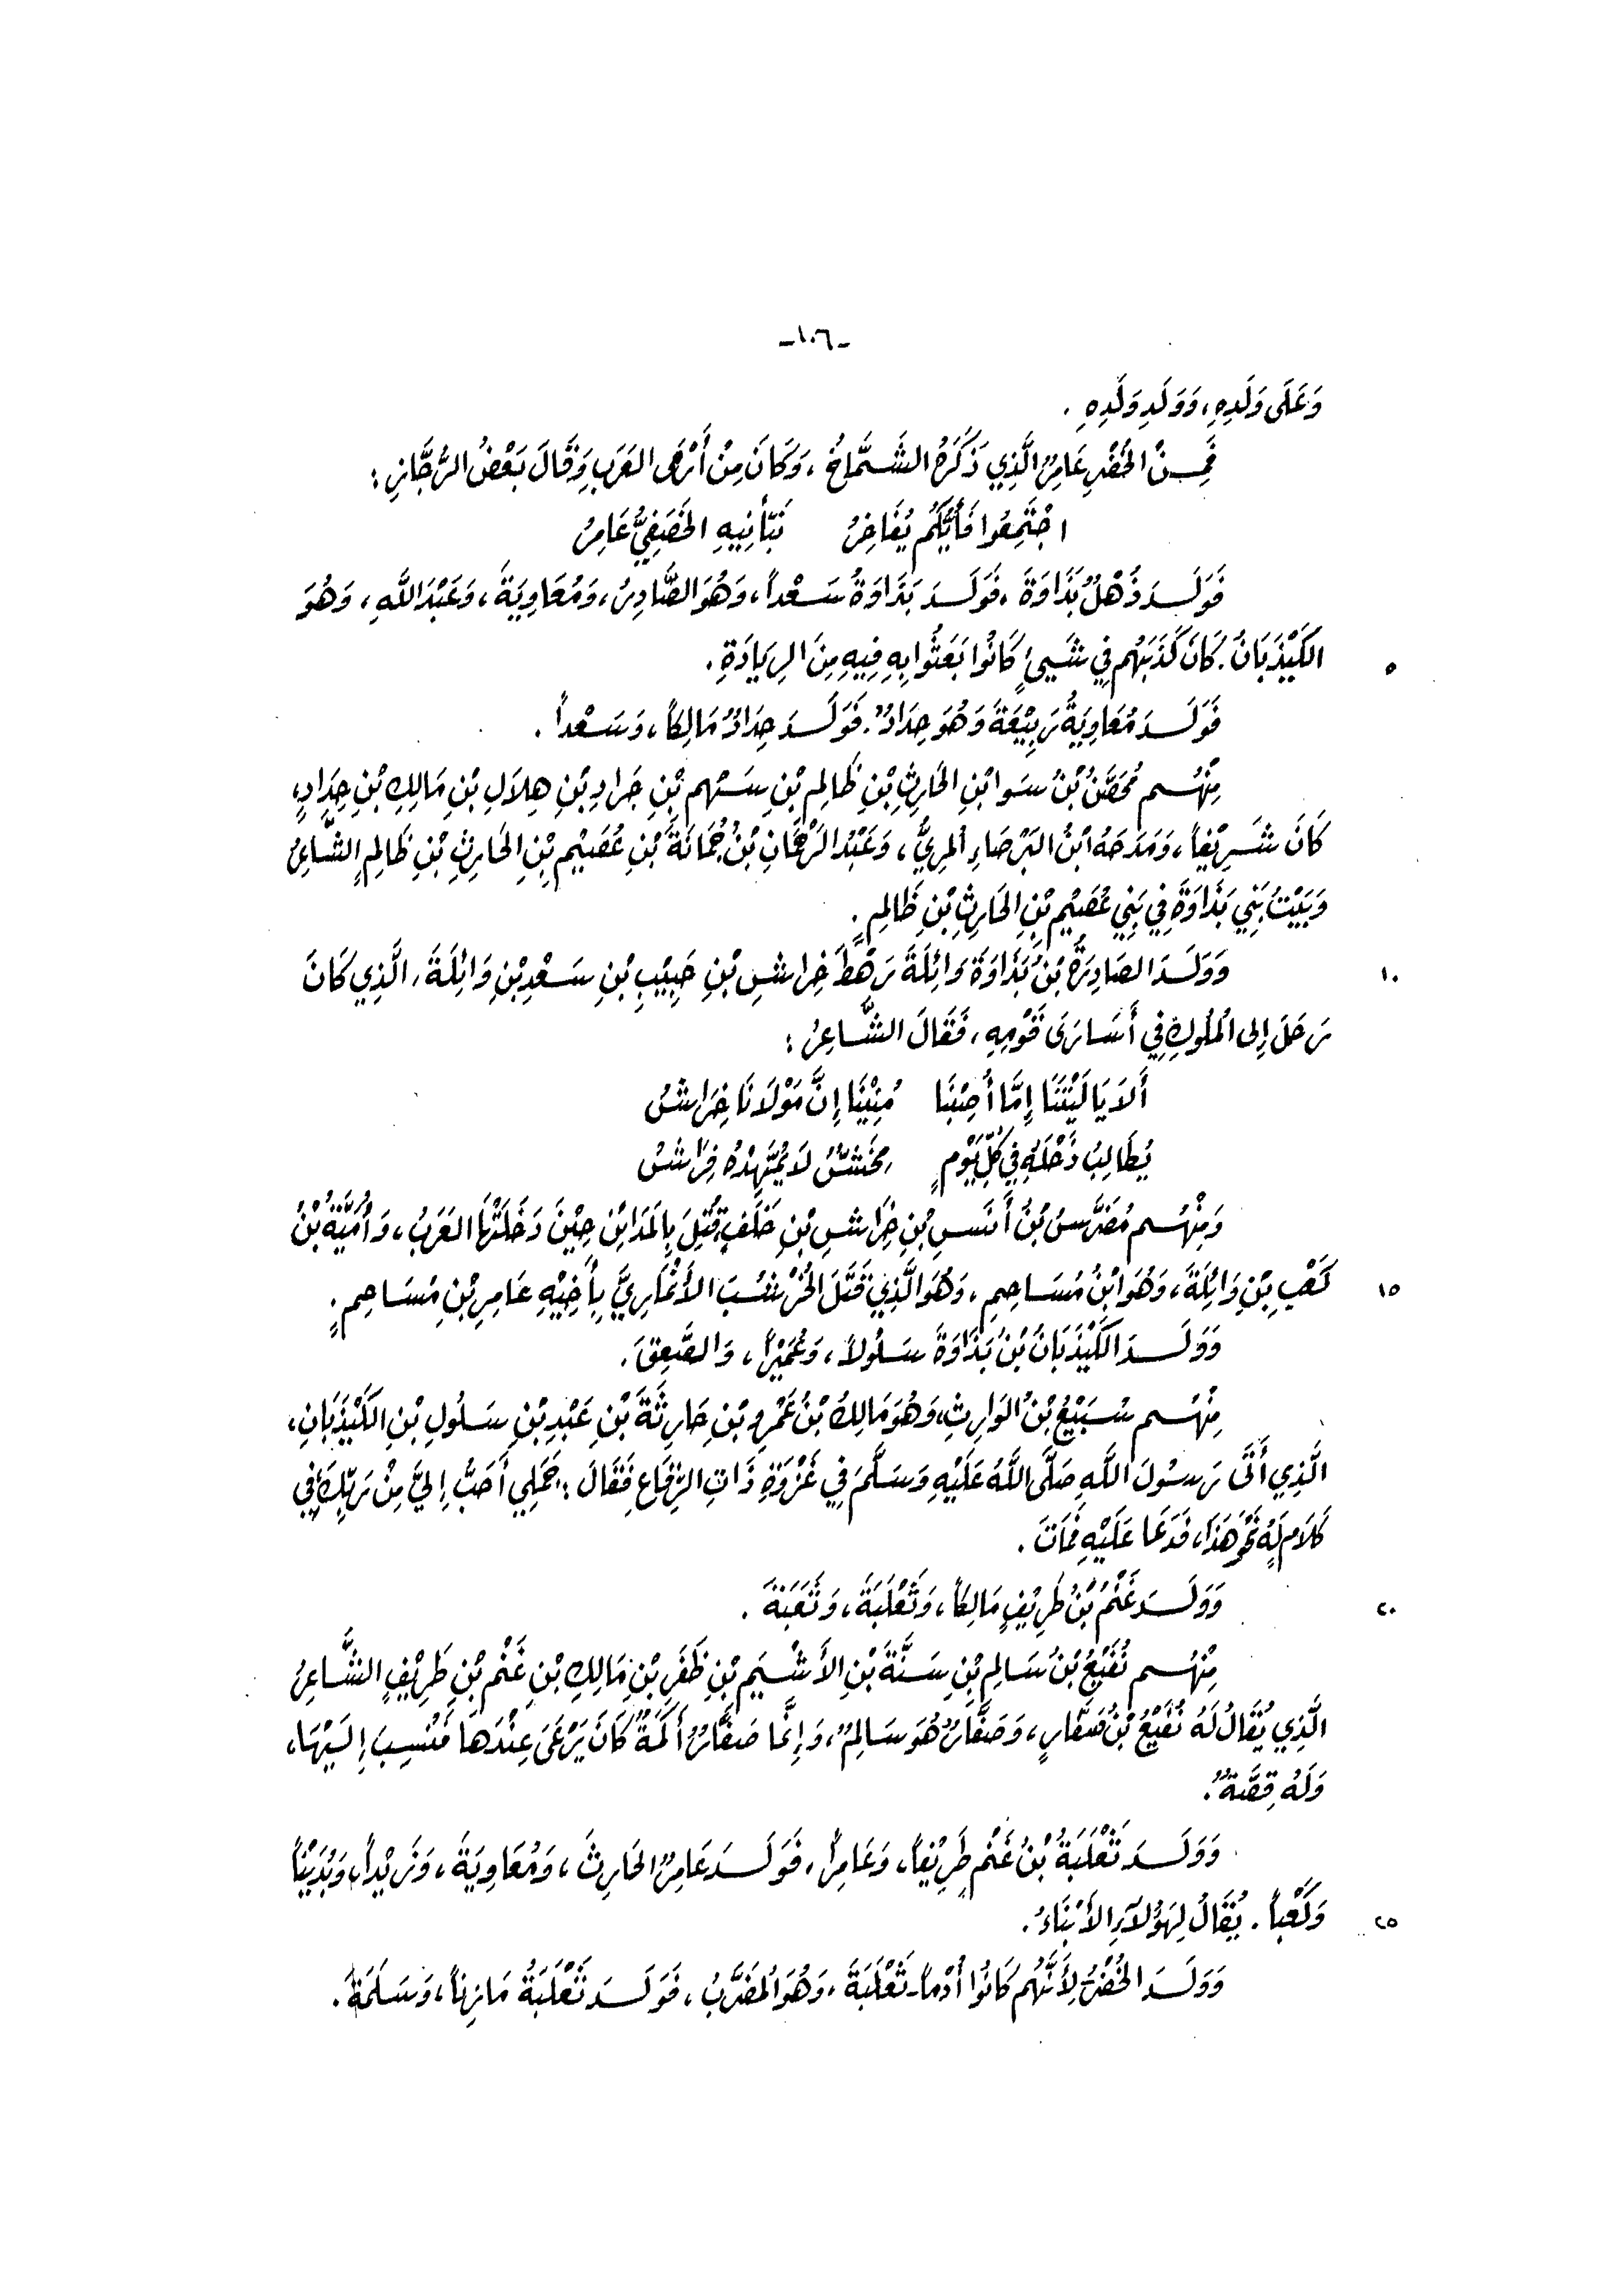 -١٠٦-
وَعَلَى وَلَدِهِ، وَوَلَدِ وَلَدِهِ .
فَمِنْ الخُضْرِ عَامِرُ الَّذِي ذَكَرَهُ الشَّمَّاخُ ، وَكَانَ مِنْ أَرْمَى العَرَبِ وَقَالَ بَعْضُ الرُّجَّازِ :
اجْتَمِعُوا فَأَيُّكُمْ يُفَاخِرُ نَبَّأَنِيهِ الخَصَفِيُّ عَامِرُ
فَوَلَدَ ذُهْلُ بَذَاوَةَ ، فَوَلَدَ بَذَاوَةُ سَعْداً ، وَهُوَ الصَّادِرُ ، وَمُعَاوِيَةَ ، وَعَبْدَ اللَّهِ ، وَهُوَ
٥ الكَيْذَبَانُ . كَانَ كَذَبَهُم فِي شَيئٍ كَانُوا بَعَثُوا بِهِ فِيهِ مِنَ الرِيَادَةِ .
فَوَلَدَ مُعَاوِيَةُ رَبِيْعَةَ وَهُوَ حِدَادٌ . فَوَلَدَ حِدَادٌ مَالِكاً ، وَسَعْداً .
مِنْهُم مُحَصَّنُ بْنُ سَوا بْنِ الحَارِثِ بْنِ ظَالِمِ بْنِ سَهْمِ بْنِ جَرَادِ بْنِ هِلَالِ بْنِ مَالِكِ بْنِ حِدَادٍ،
كَانَ شَرِيْفاً ، وَمَدَحَهُ ابْنُ البَرْصَاءِ المرِيُّ ، وَعَبْدُ الرَّحْمَانِ بْنُ جُمَانَةَ بْنِ عُصَيْمِ بْنِ الحَارِثِ بْنِ ظَالِمٍ الشَّاعِرُ
وَبَيْتُ بَنِي بَذَاوَةَ فِي بَنِي عُصَيْمِ بْنِ الحَارِثِ بْنِ ظَالِمٍ .
١٠ وَوَلَدَ الصَادِرَةُ بْنُ بَذَاوَةَ وَائِلَةَ رَهْطَ خِرَاشِ بْنِ حَبِيْبِ بْنِ سَعْدِ بْنِ وَائِلَةَ ، الَّذِي كَانَ
رَحَلَ إِلى المُلُوكِ فِي أَسَارَى قَوْمِهِ ، فَقَالَ الشَّاعِرُ :
أَلاَ يَا لَيْتَنَا إِمَّا أُصِبْنَا مُنِيْنَا إِنَّ مَوْلَانَا خِرَاشُ
يُطَالِبُ ذَحْلَهُ فِي كُلِّ يَوْمٍ مِخَشٌّ لاَ يُمَهِّدُهُ فِرَاشُ
وَمِنْهُم مُضَرَّسُ بْنُ أَنَسِ بْنِ خِرَاشِ بْنِ خَلَفٍ قُتِلَ بِالمَدَائِنِ حِيْنَ دَخَلَتْهَا العَرَبُ ، وَأُمَيَّةُ بْنُ
١٥ كَعْبِ بْنِ وَائِلَةَ ، وَهُوَ ابْنُ مُسَاحِمٍ ، وَهُوَ الَّذِي قَتَلَ الخُرْشُبَ الأَنْمَارِيَّ بِأَخِيْهِ عَامِرِ بْنِ مُسَاحِمٍ .
وَوَلَدَ الكَيْذَبَانُ بْنُ بَذَاوَةَ سَلُولاً ، وَعُمَيْراً ، وَالصَّعِقَ .
مِنْهُم سُبَيْعُ بْنُ الوَارِثِ، وَهُوَ مَالِكُ بْنُ عَمْرِو بْنِ حَارِثَةَ بْنِ عَبْدِ بْنِ سَلُولِ بْنِ الكَيْذَبَانِ ،
الَّذِي أَتَى رَسُولَ اللَّهِ صَلَّى اللَّهُ عَلَيْهِ وَسَلَّمَ فِي غَزْوَةِ ذَاتِ الرِّقَاعِ فَقَالَ : جَمَلِي أَحَبُّ إِلَيَّ مِنْ رَبِّكَ فِي
كَلاَمٍ لَهُ نَحْوِ هَذَا ، فَدَعَا عَلَيْهِ فَمَاتَ .
٢٠ وَوَلَدَ غَنْمُ بْنُ طَرِيْفٍ مَالِكاً ، وَثَعْلَبَةَ ، وَثَعَبَةَ .
مِنْهُم نُفَيْعُ بْنُ سَالِمِ بْنِ سَنَّةَ بْنِ الأَشْيَمِ بْنِ ظَفَرِ بْنِ مَالِكِ بْنِ غَنْمِ بْنِ طَرِيْفٍ الشَّاعِرُ
الَّذِي يُقَالُ لَهُ نُفَيْعُ بْنُ صَفَّارٍ ، وَصَفَّارُ هُوَ سَالِمٌ ، وَإِنَّمَا صَفَّارُ أَكَمَةٌ كَانَ يَرْعَى عِنْدَهَا فَنُسِبَ إِلَيْهَا ،
وَلَهُ قِصَّةٌ .
وَوَلَدَ ثَعْلَبَةُ بْنُ غَنْمٍ طَرِيْفاً ، وَعَامِراً ، فَوَلَدَ عَامِرٌ الحَارِثَ ، وَمُعَاوِيَةَ ، وَزَيْداً ، وَبُدَيْناً
٢٥ وَكَعْباً . يُقَالُ لِهَؤُلآءِ الأَبْنَاءُ .
وَوَلَدَ الخُضْرُ لِأَنَّهُم كَانُوا أُدْماً ثَعْلَبَةَ ، وَهُوَ المُضَرَّبُ ، فَوَلَدَ ثَعْلَبَةُ مَازِناً ، وَسَلَمَةَ .